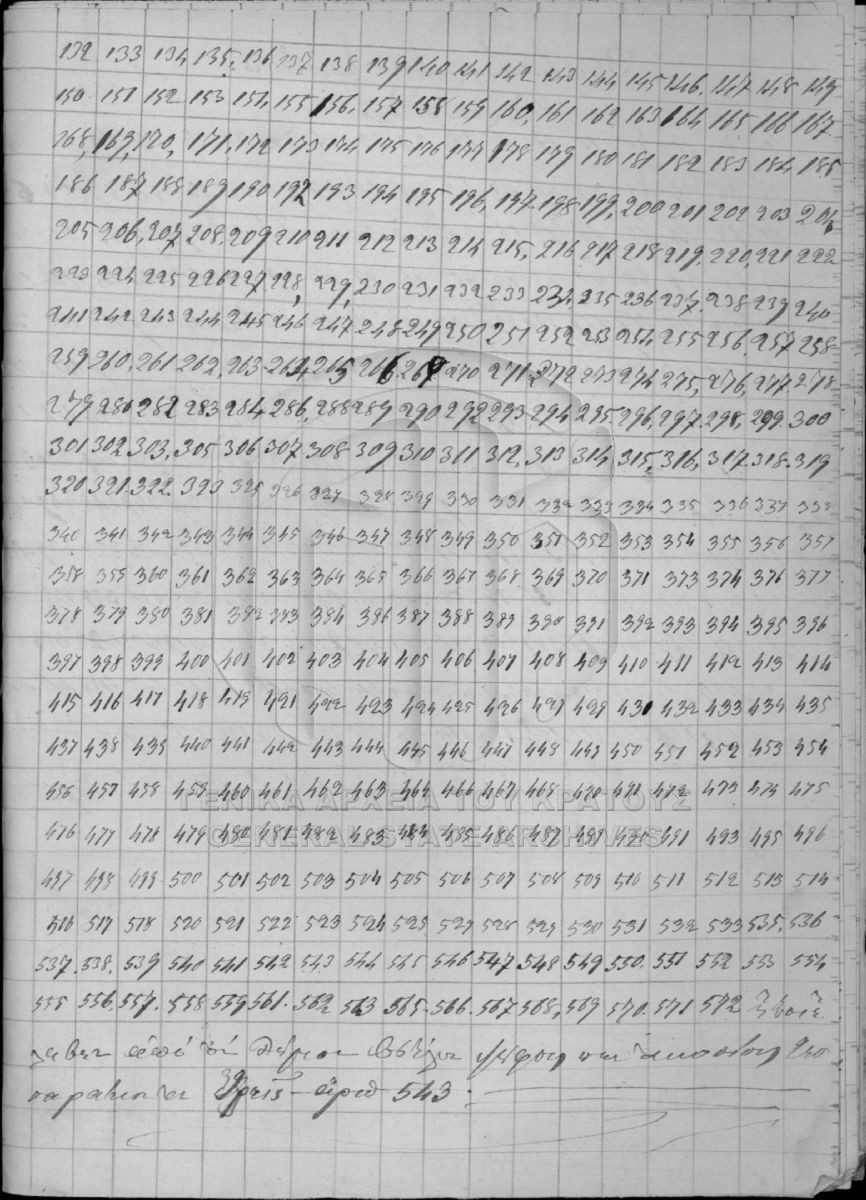 132 133 134 135. 136 137 138 139 140 141 142 143 144 145 146. 147 148 149
150. 151 152 153 154 155 156. 157 158 159 160, 161 162 163 164 165. 166 167
168, 169, 170, 171, 172 173 174 175 176 177 178 179 180 181 182 183 184 185
186 187 188 189 190 192 193 194 195 196, 197. 198 199, 200 201 202 203 204,
205 206, 207 208. 209 210 211 212 213 214 215, 216 217 218 219. 220, 221 222
223 224 225 226 227 228, 229, 230 231 232 233 234, 235 236 237. 238 239 240
241 242 243 244 245 246 247 248 249 250 251 252 253 254 255 256. 257 258
259 260, 261 262, 263 264 265 266 267 270 271 272 273 274 275, 276, 277 278
279 280 282 283 284 286, 288 289 290 292 293 294 295. 296, 297. 298, 299. 300
301 302 303, 305 306 307 308 309 310 311 312, 313 314 315, 316, 317 318. 319
320 321. 322. 323 325 326 327 328 329 330 331 332 333 334 335 336 337 338
340 341 342 343 344 345 346 347 348 349 350 351 352 353 354 355 356 357
358 359 360 361 362 363 364 365 366 367 368 369 370 371 373 374 376 377
378 379 380 381 382 383 384 386 387 388 389 390 391 392 393 394 395 396
397 398 399 400 401 402 403 404 405 406 407 408 409 410 411 412 413 414
415 416 417 418 419 421 422 423 424 425 426 427 429 431 432 433 434 435
437 438 439 440 441 442 443 444 445 446 447 448 449 450 451 452 453 454
456 457 458 459 460 461 462 463 464 466 467 468 470 471 472 473 474 475
ΓΕΝΙΚΑ ΑΡΧΕΙΑ ΤΟΥ ΚΡΑΤΟΥΣ
476 477 478 479 480 481 482 483 484 485 486 487 491 493 495 496
GENERAL STATE ARCHIVES
497 498 499 500 501 502 503 504 505 506 507 508 509 510 511 512 513 514
516 517 518 520 521 522 523 524 525 527 528 529 530 531 532 533 535. 536
537. 538. 539 540 541 542 543 544 545 546 547 548 549 550. 551 552 553 554
555 556. 557. 558 559 561. 562 563 565. 566. 567 568, 569 570. 571 572
ψήφους
543.